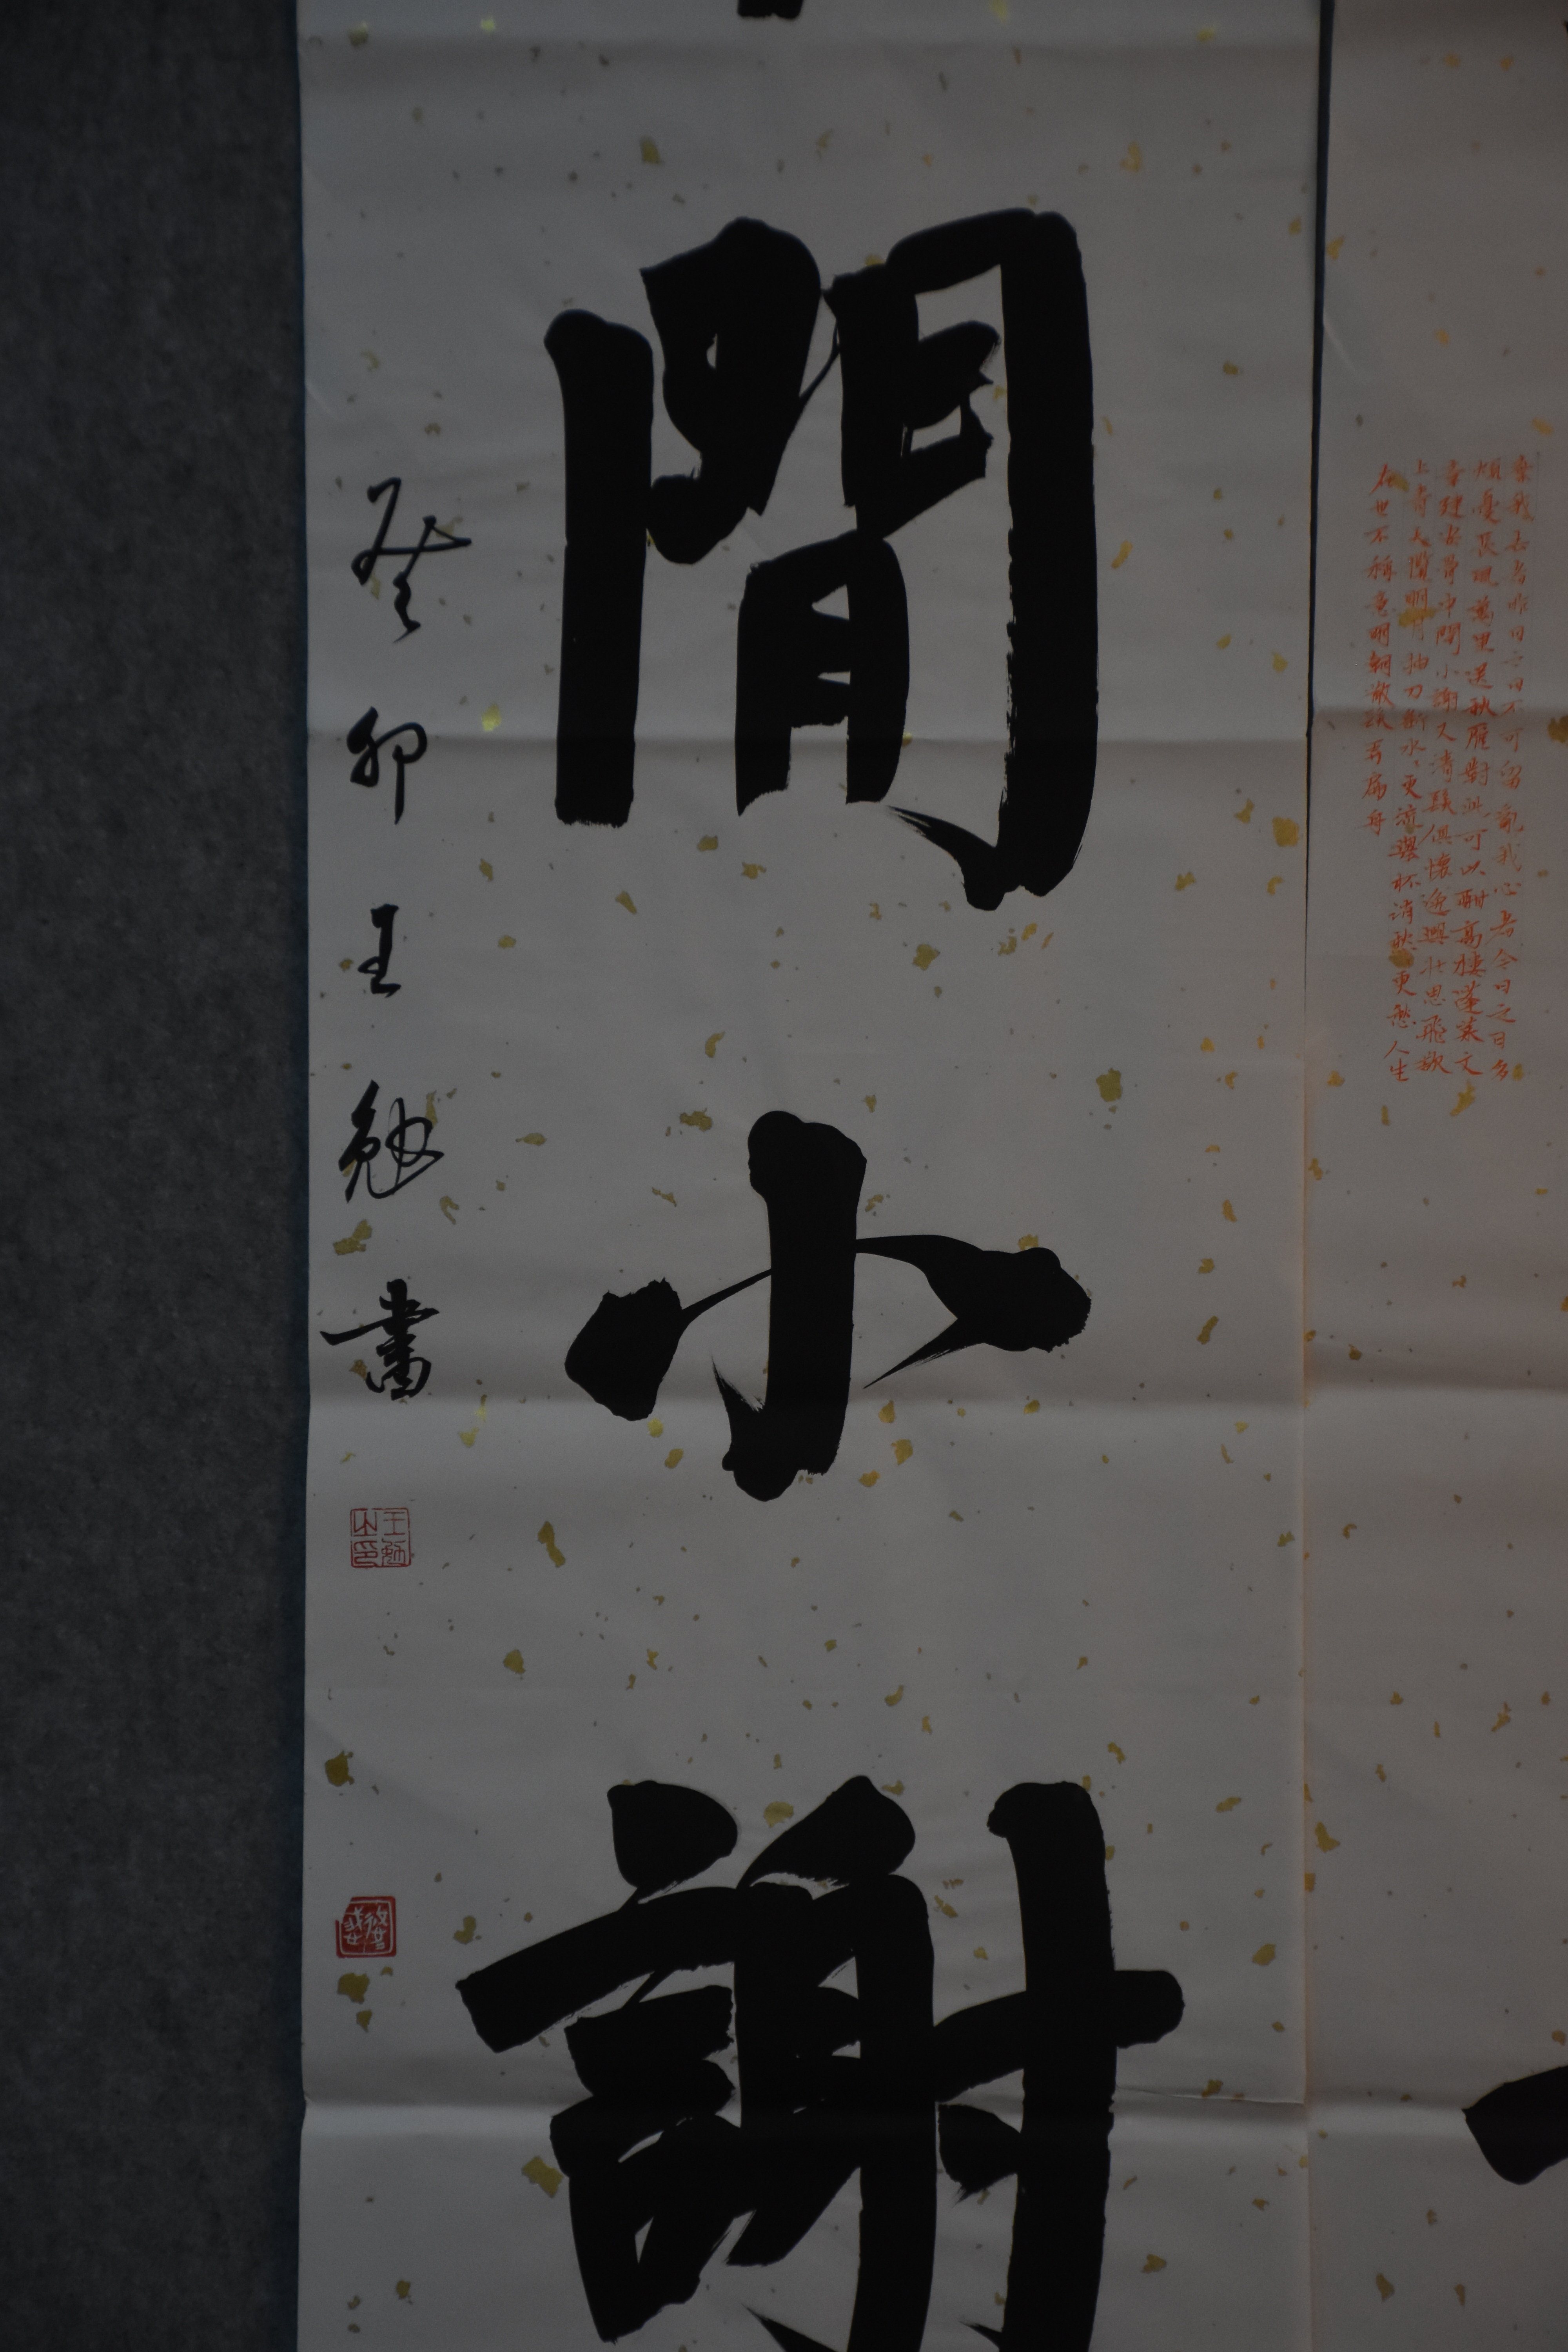 棄我去者昨日之日不可留亂我心者今日之日多
煩憂長風萬里送秋雁對此可以酣高樓蓬萊文
章建安骨中間小謝又清發俱懷逸興壯思飛欲
上青天攬明月抽刀斷水々更流舉杯消愁々更愁人生
在世不稱意明朝散髮弄扁舟
閒小謝
癸卯王勉書
王勉之印